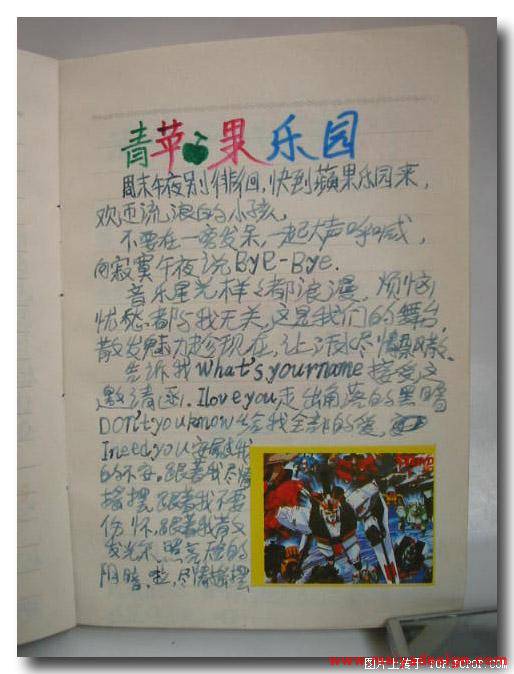 青苹果乐园
周末午夜别徘徊,快到蘋果乐园来,
欢迎流浪的小孩,
不要在一旁发呆,一起大声呼喊,
向寂寞午夜说Bye-Bye.
音乐星光样样都浪漫,烦恼
忧愁都与我无关,这是我们的舞台,
散发魅力趁现在,让汗水尽情
告诉我What's your name接受这
邀请函.I love you走出角落的黑暗
DON't you know给我全部的爱,
I need you安慰我
的不安.跟着我尽情
摇摆.跟着我不要
伤怀.跟着我
发光 照亮 的
阴暗. 尽情摇摆
图片上传于